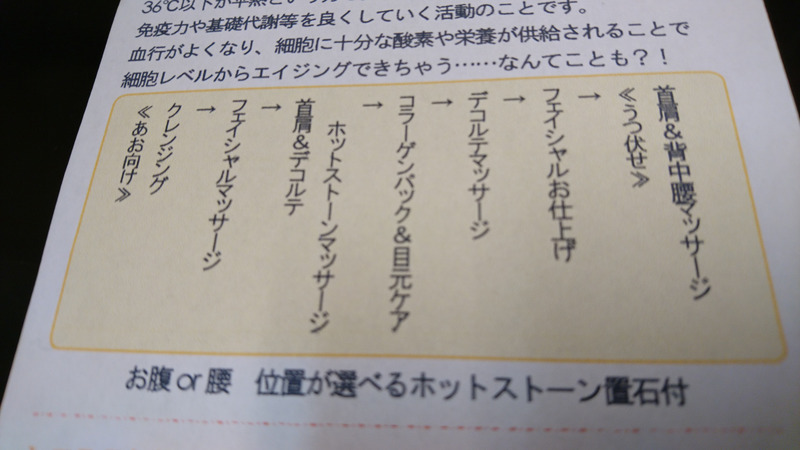 36℃以下が平熱という方
免疫力や基礎代謝等を良くしていく活動のことです。
血行がよくなり、細胞に十分な酸素や栄養が供給されることで
細胞レベルからエイジングできちゃう……なんてことも？！
≪あお向け≫
クレンジング
→
フェイシャルマッサージ
→
首肩＆デコルテ
ホットストーンマッサージ
→
コラーゲンパック＆目元ケア
→
デコルテマッサージ
→
フェイシャルお仕上げ
→
≪うつ伏せ≫
首肩＆背中腰マッサージ
お腹or腰　位置が選べるホットストーン置石付